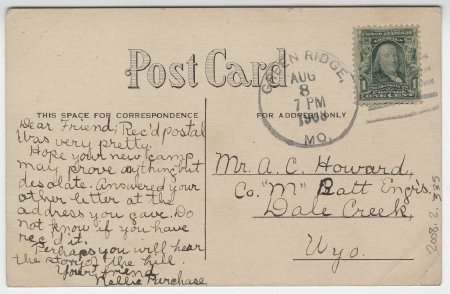 Post Card
THIS SPACE FOR CORRESPONDENCE
FOR ADDRESS ONLY
GREEN RIDGE,
AUG
8
7 PM
1908
MO.
Dear Friend; Rec'd postal
Was very pretty.
Hope your new camp
may prove anything but
desolate. Answered your
other letter at the
address you gave. Do
not know if you have
rec'd it.
Perhaps you will hear
the story of the hill.
Your friend
Nellie Purchase
Mr. A. C. Howard,
Co. "M" 2 Batt Engrs.
Dale Creek,
Wyo.
2008.2.325